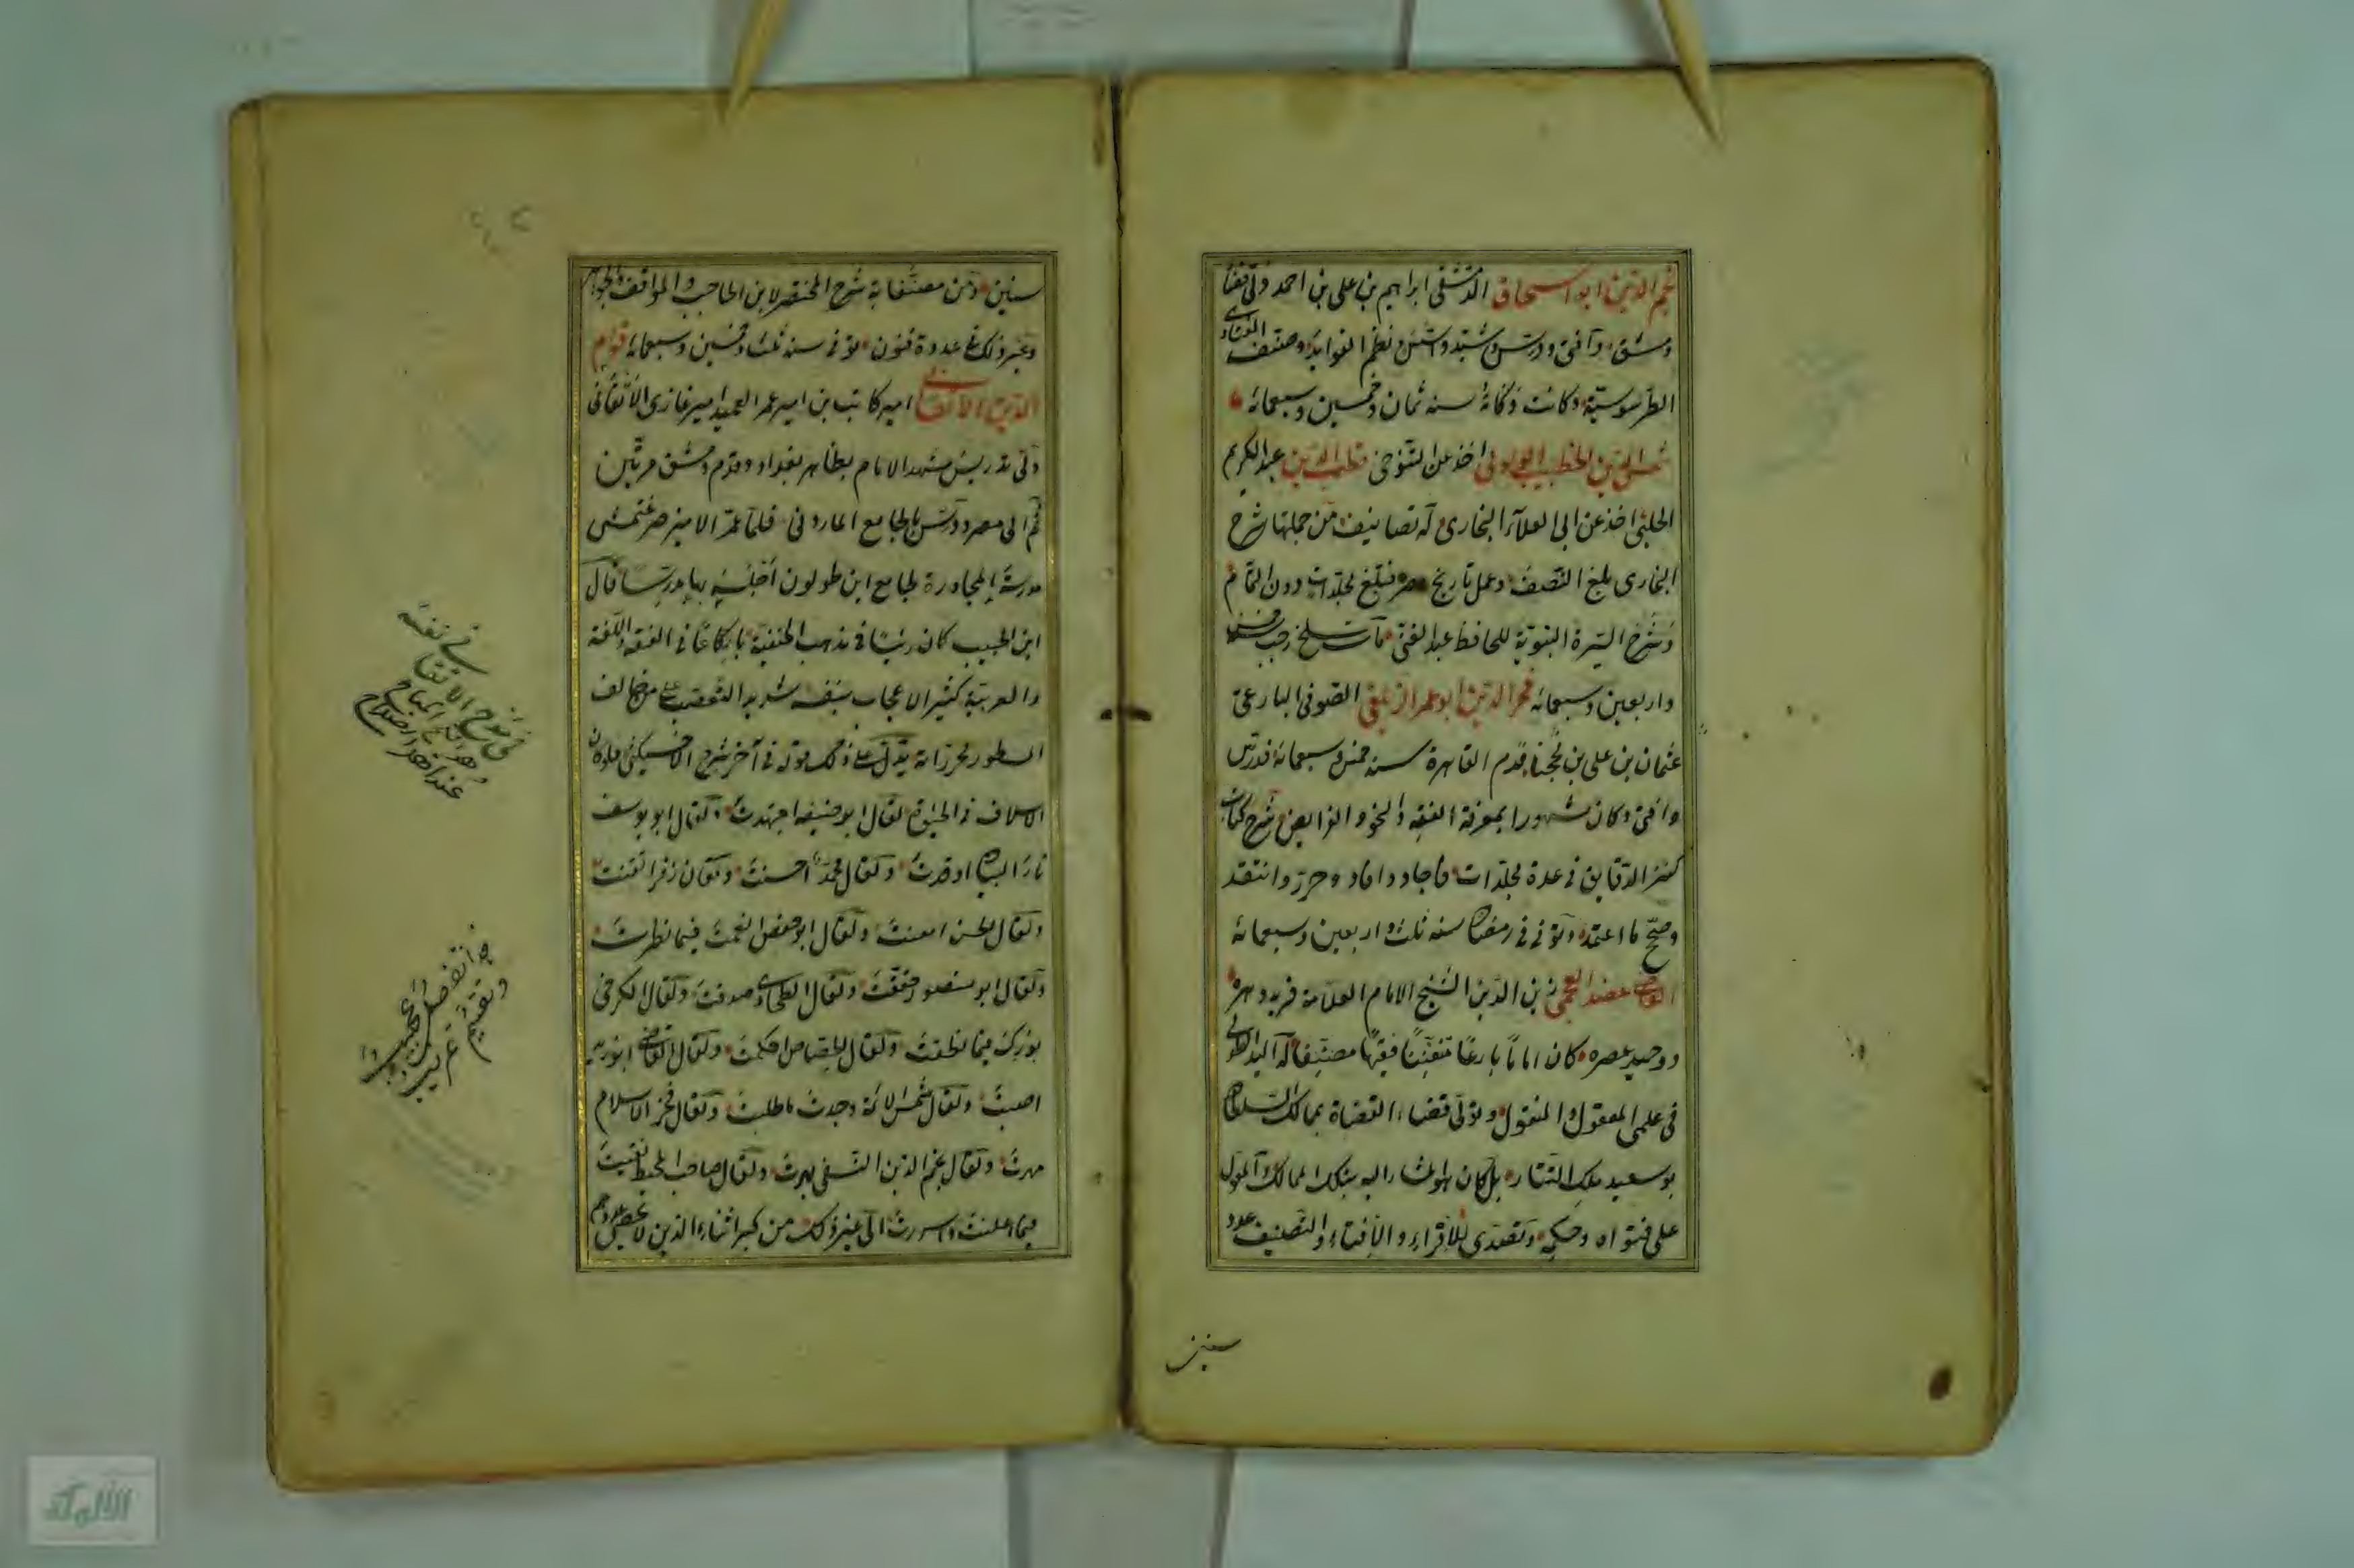 نجم الدين ابو اسحاق الدمشقى ابراهيم بن على بن احمد ولى قضاء
دمشق وافتى ودرس ونظم الفوايد وصنف الفتاوى
الطرسوسية وكانت وفاته سنه ثمان وخمسين وسبعمائه
اخذ عن التنوخى قطب الدين عبد الكريم
الحلبى اخذ عن ابى العلاء البخارى له تصانيف من جملتها شرح
البخارى بلغ النصف وعمل تاريخ مصر فبلغ مجلدات دون التمام
وشرح السيرة النبوية للحافظ عبد الغنى مات سلخ رجب خمس
واربعين وسبعمائه فخر الدين ابو عمر الزيلعى الصوفى البارعى
عثمان بن على بن محجن قدم القاهرة سنه خمس وسبعمائة فدرس
وافتى وكان مشهورا بمعرفة الفقه والنحو والفرايض شرح كتاب
كنز الدقايق فى عدة مجلدات فاجاد وافاد وحرر وانتقد
وصحح ما اعتمد وتوفى فى رمضان سنه ثلث واربعين وسبعمائة
القاضى عضد العجمى زين الدين الشيخ الامام العلامة فريد دهره
ووحيد عصره كان اماما بارعا متفننا فقيها مصنفا له اليد الطولى
فى علمى المعقول والمنقول وتولى قضاء القضاة بممالك السلطان
بوسعيد ملك التتار بل كان هو المشار اليه بتلك الممالك المعول
على فتواه وحكمه وتصدى للاقراء والافتاء والتصنيف عدد
سنين
سنين ومن مصنفاته شرح المختصر لابن الحاجب والمواقف والجواهر
وغير ذلك فى عدة فنون توفى سنه ثلث وخمسين وسبعمائة قوام
الدين الاتقانى امير كاتب بن امير عمر العميد امير غازى الاتقانى
ولى تدريس مشهد الامام بظاهر بغداد وقدم دمشق مرتين
ثم الى مصر ودرس بالجامع الماردانى فلما عمر الامير صرغتمش
مدرسة المجاورة لجامع ابن طولون اجلسه بها مدرسا قال
ابن الحبيب كان رئيسا فى مذهب الحنفية بارعا فى الفقه واللغة
والعربية كثير الاعجاب بنفسه شديد التعصب على من خالف
السطور لحررانه يدل على ذلك قوله فى آخر شرح الاخسيكثى فلو كان
الاسلاف فى الحيوة لقال ابو حنيفه اجتهدت ولقال ابو يوسف
نار البيان اوقدت ولقال محمد احسنت ولقال زفر اتقنت
ولقال الحسن امعنت ولقال ابو حفص انعمت فيما نظرت
ولقال ابو منصور حققت ولقال الطحاوى صدقت ولقال الكرخى
بورك فيما نطقت ولقال الجصاص احكمت ولقال القاضى ابو زيد
اصبت ولقال شمس الائمة وجدت ما طلبت ولقال فخر الاسلام
مهرت ولقال نجم الدين النسفى بهرت ولقال صاحب المحيط
فيما اعلنت واسررت الى غير ذلك من كبرائنا الذين لا يحصى عددهم